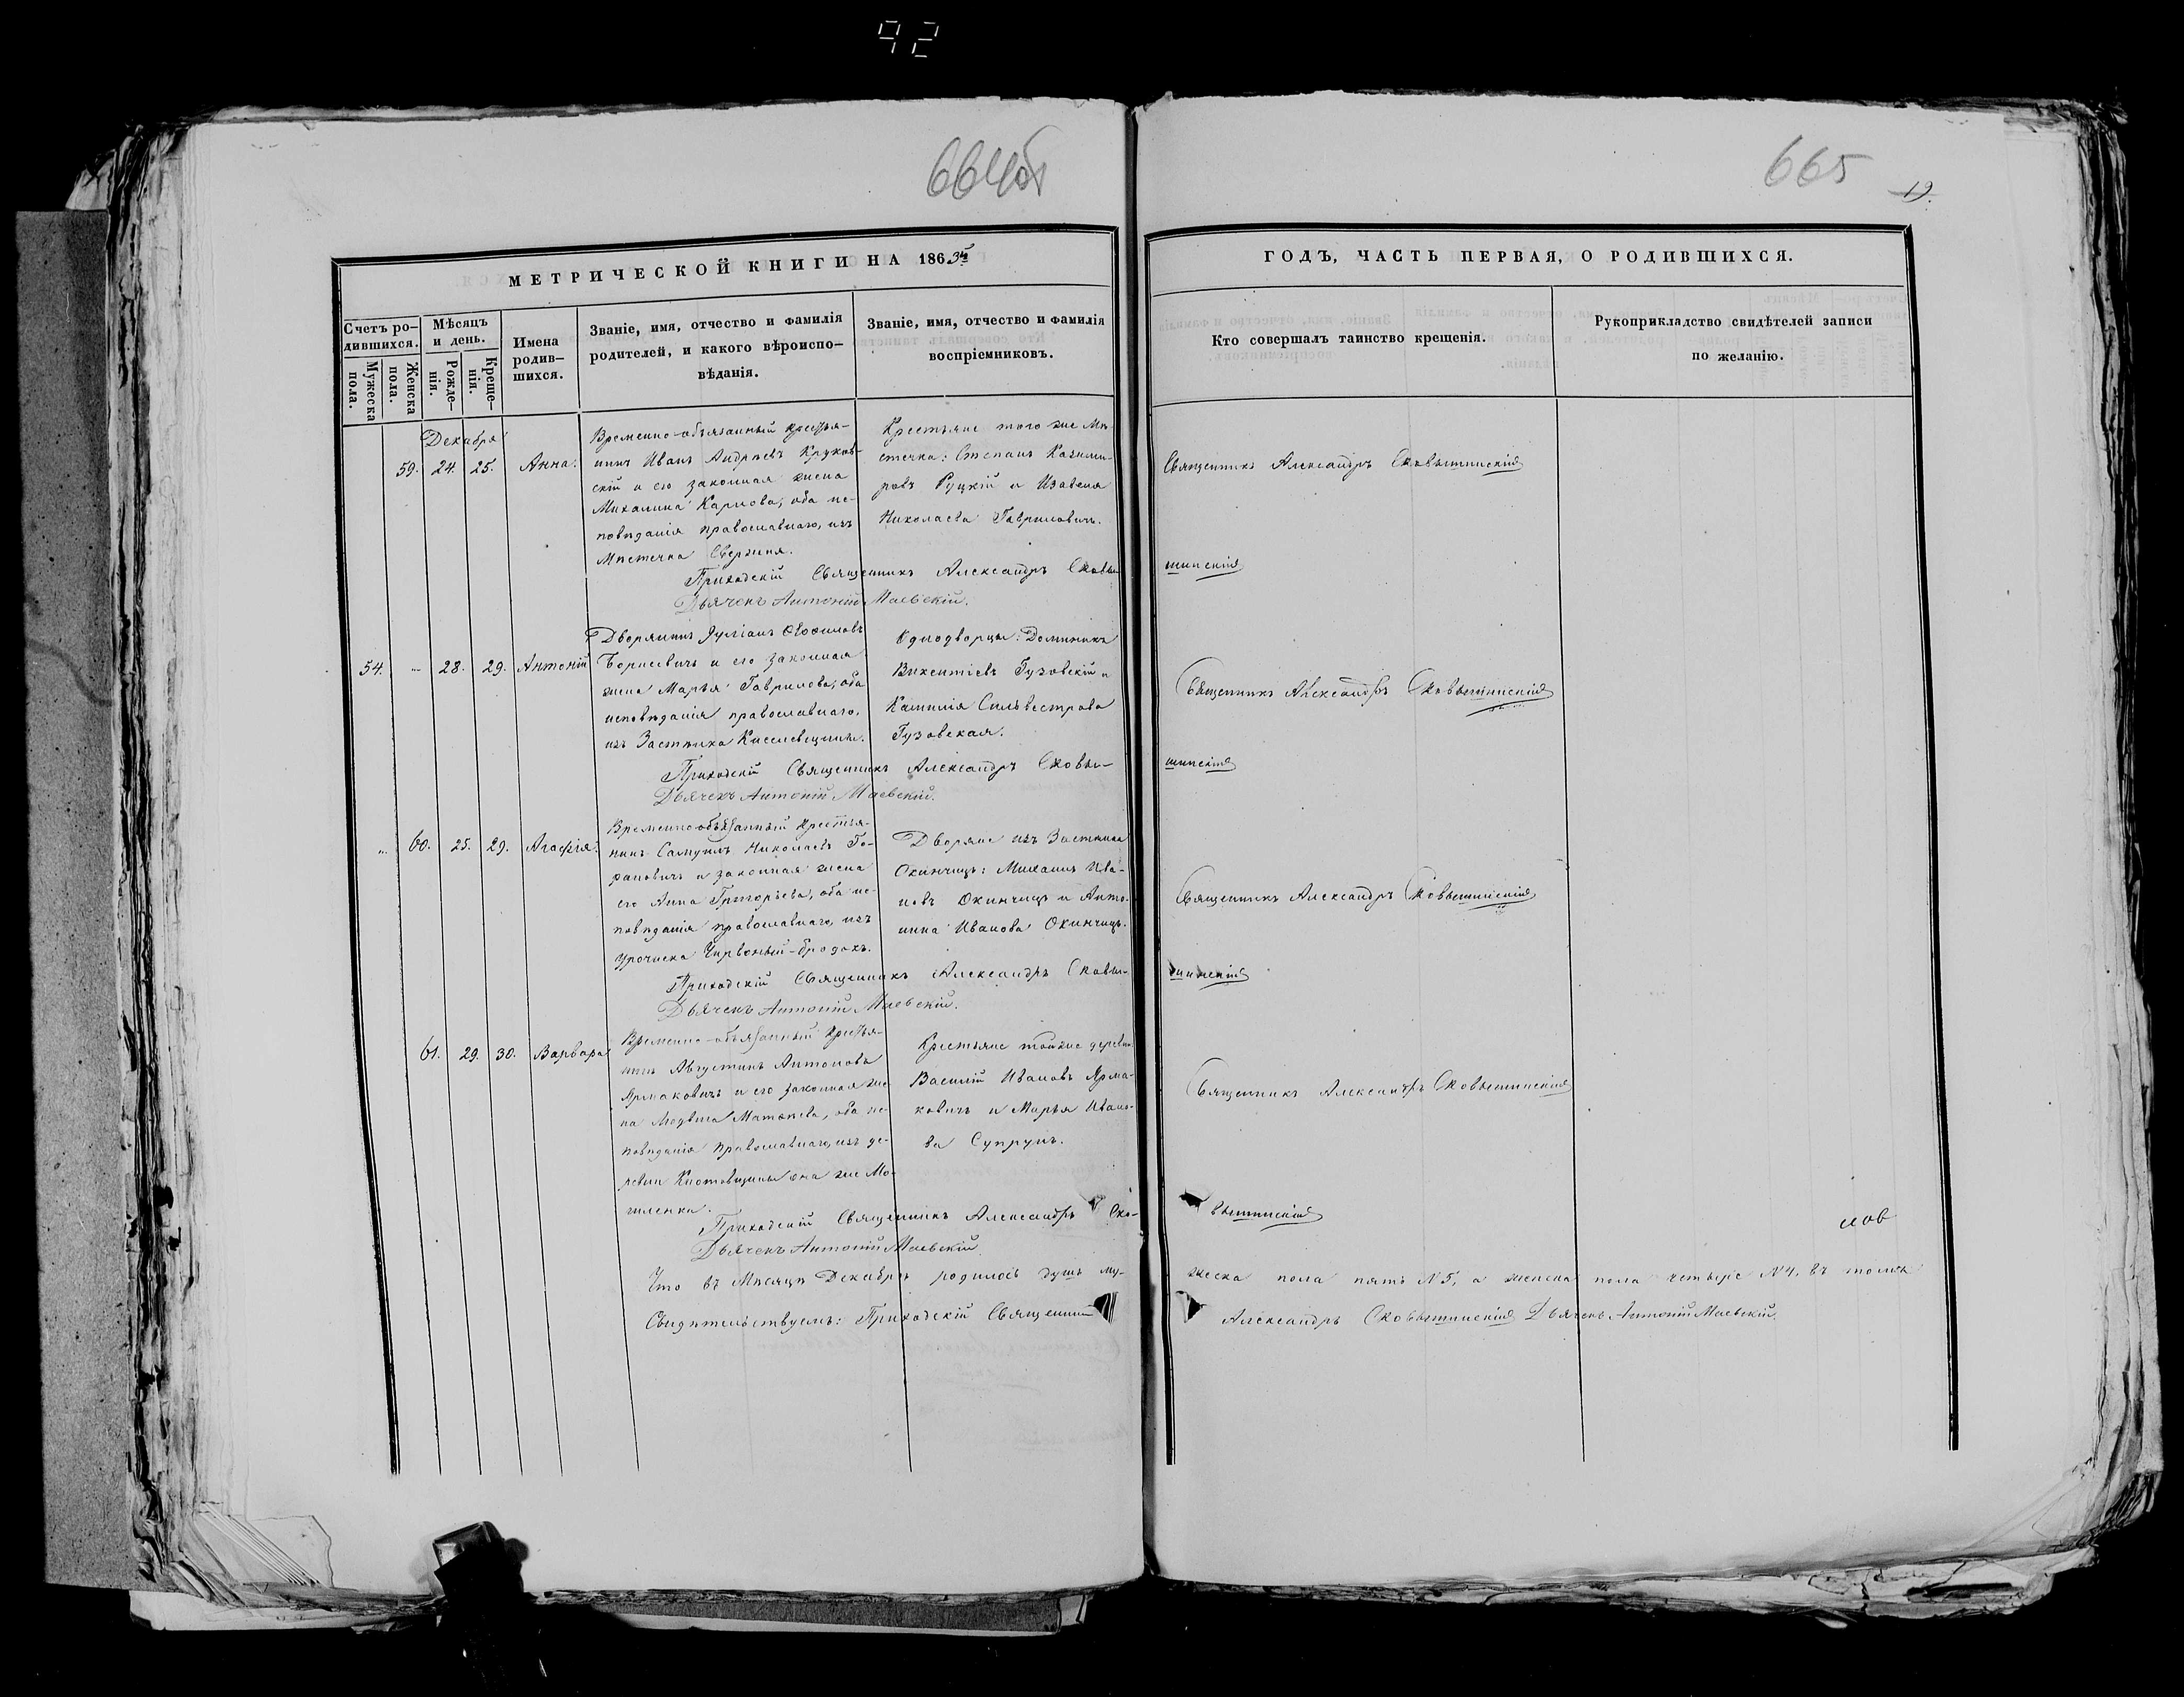 92
664об
665
19.
МЕТРИЧЕСКОЙ КНИГИ НА 1863й
ГОДЪ, ЧАСТЬ ПЕРВАЯ, О РОДИВШИХСЯ.
Счетъ ро-
дившихся.
Мужеска
пола.
Женска
пола.
Мѣсяцъ
и день.
Рожде-
нія.
Креще-
нія.
Имена
родив-
шихся.
Званіе, имя, отчество и фамилія
родителей, и какого вѣроиспо-
вѣданія.
Званіе, имя, отчество и фамилія
воспріемниковъ.
Кто совершалъ таинство крещенія.
Рукоприкладство свидѣтелей записи
по желанію.
Декабря
59. 24. 25. Анна.
Временно-обязанный крестья-
нинъ Иванъ Андреевъ Круков-
скій и его законная жена
Михалина Карлова, оба ис-
повѣданія православнаго, изъ
Мѣстечка Свержня.
Крестьяне того же Мѣ-
стечка: Степанъ Казими-
ровъ Руцкій и Изабеля
Николаева Гавриловичъ.
Священникъ Александръ Сковышинскій
Приходскій Священникъ Александръ Сковы-
шинскій
Дьячекъ Антоній Маевскій.
54. " 28. 29. Антоній
Дворянинъ Юліанъ
Борисевичъ и его законная
жена Марья Гаврилова, оба
исповѣданія православнаго,
изъ Застѣнка Киселевщины.
Однодворцы: Доминикъ
Викентіевъ Гузовскій и
Камилія Сильвестрова
Гузовская.
Священникъ Александръ Сковышинскій
Приходскій Священникъ Александръ Сковы-
шинскій
Дьячекъ Антоній Маевскій.
" 60. 25. 29. Агафія.
Временнообязанный крестья-
нинъ Самуилъ Николаевъ Го-
рановичъ и законная жена
его Анна Григорьева, оба ис-
повѣданія православнаго, изъ
урочиска Чирвоный-бродокъ.
Дворяне изъ Застѣнка
Окинчицъ: Михаилъ Ива-
новъ Окинчицъ и Анто-
нина Иванова Окинчицъ.
Священникъ Александръ Сковышинскій
Приходскій Священникъ Александръ Сковы-
шинскій
Дьячекъ Антоній Маевскій.
61. 29. 30. Варвара
Временно-обязанный крестья-
нинъ Августинъ Антоновъ
Ярмаковичъ и его законная же-
на Людвига Матвѣева, оба ис-
повѣданія православнаго, изъ де-
ревни Кнотовщины она же Мо-
гиленки.
Крестьяне тойже деревни
Василій Ивановъ Ярма-
ковичъ и Марья Ивано-
ва Супрунъ.
Священникъ Александръ Сковышинскій
Приходскій Священникъ Александръ Ско-
вышинскій
Дьячекъ Антоній Маевскій.
Что въ Мѣсяцѣ Декабрѣ родилось душъ му-
жеска пола пять №5, а женска пола четыре №4. въ томъ
Свидѣтельствуемъ: Приходскій Священникъ
Александръ Сковышинскій Дьячекъ Антоній Маевскій.